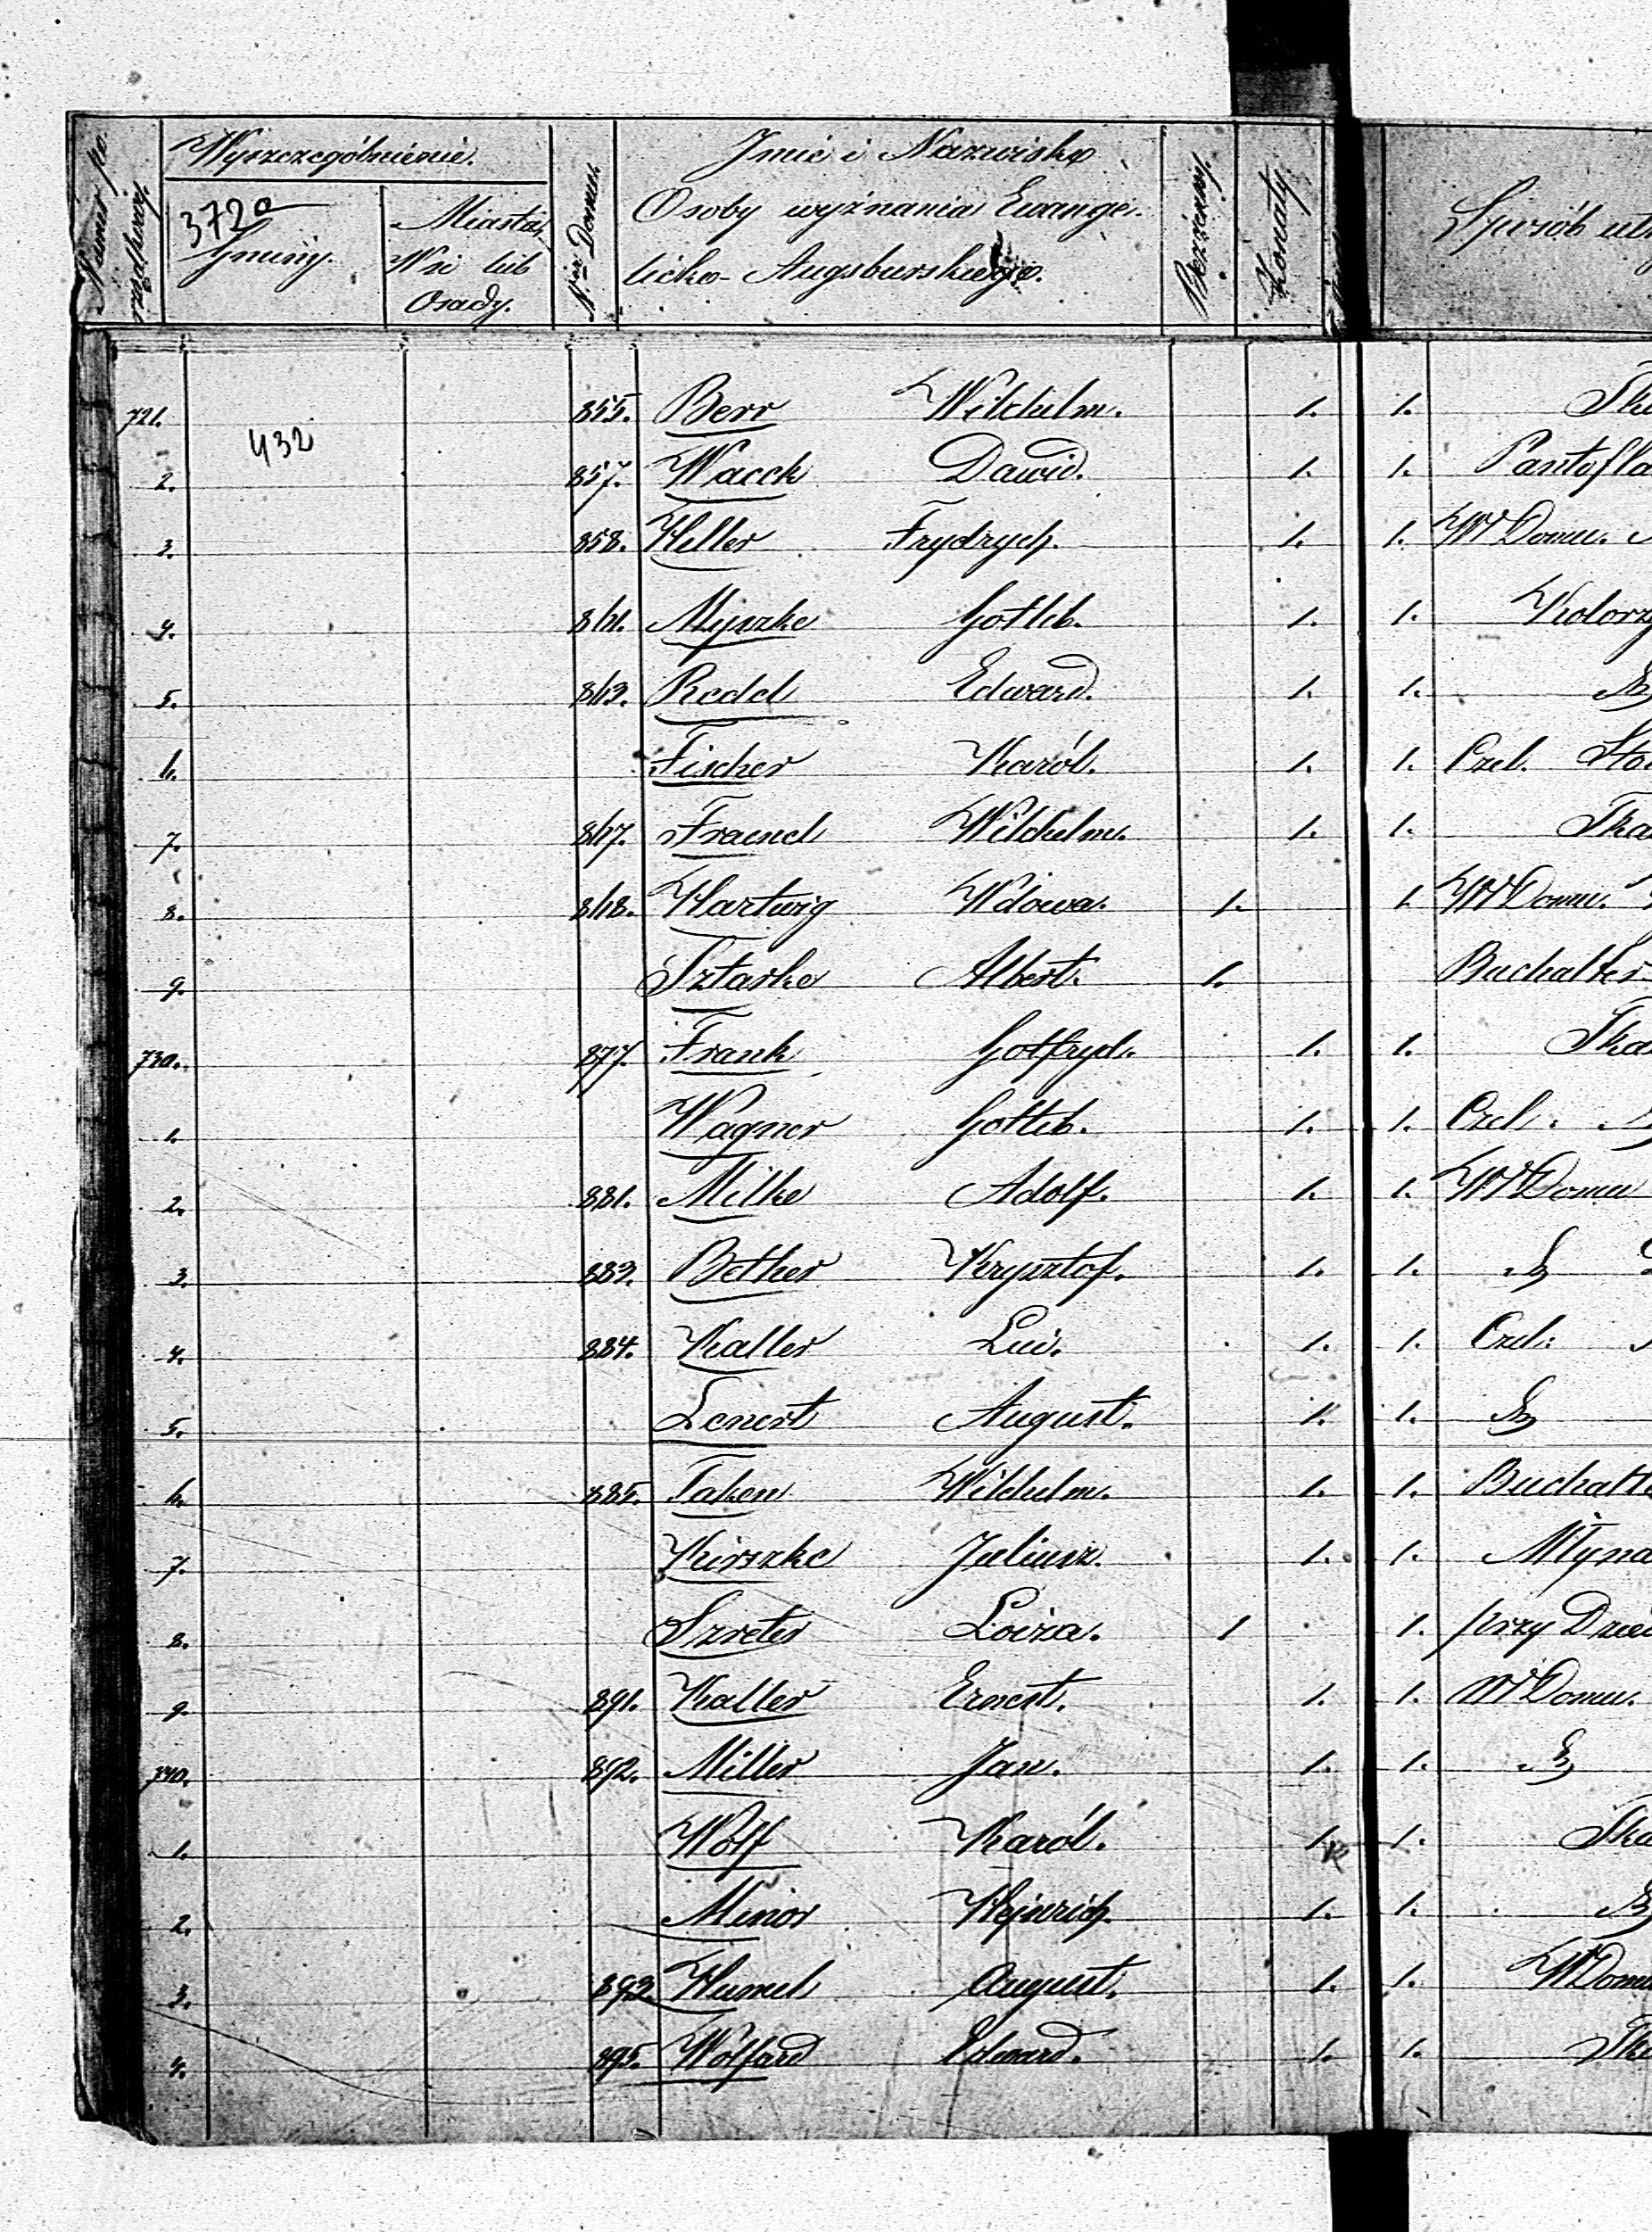 Numer po-
rządkowy.
Wyszczególnienie.
372a
Gminy.
Miasta,
Wsi lub
Osady.
Nr Domu.
Imie i Nazwisko
Osoby wyznania Ewange-
licko-Augsburskiego.
Bezżenny.
Żonaty
Sposób
721. 432 855. Berr Wilchelm. 1. 1.
2. 857. Wacch Dawid. 1. 1. Pantofla
3. 858. Heller Frydrych. 1. 1. W Domu.
4. 861. Myszke Gotlib. 1. 1. Kolorz
5. 863. Redel Edward. 1. 1.
6. Fischer Karól. 1. 1. Czel. Sto
7. 867. Fraend Wilchelm. 1. 1. Tka
8. 868. Hartwig Wdowa. 1. 1. W Domu.
9. Sztarke Albert. 1. Buchalter
730. 877. Frank Gotfryd. 1. 1. Tka
1. Wagner Gottlib. 1. 1. Czel.
2. 881. Milke Adolf. 1. 1. W Domu
3. 883. Bether Krysztof. 1. 1.
4. 884. Kaller Lui. 1. 1. Czel:
5. Lenert August. 1. 1.
6. 885. Taken Wilchelm. 1. 1. Buchalte
7. Kirszke Juliusz. 1. 1. Młyna
8. Szreter Loiza. 1 1. przy Dzie
9. 891. Kaller Ernest. 1. 1. W Domu.
740. 892. Miller Jan. 1. 1.
1. Wolf Karól. 1. 1. Tka
2. Minor Hejnrich. 1. 1.
3. 893. Humel August. 1. 1. W Domu
4. 895. Wolfard Edward. 1. 1. Tka